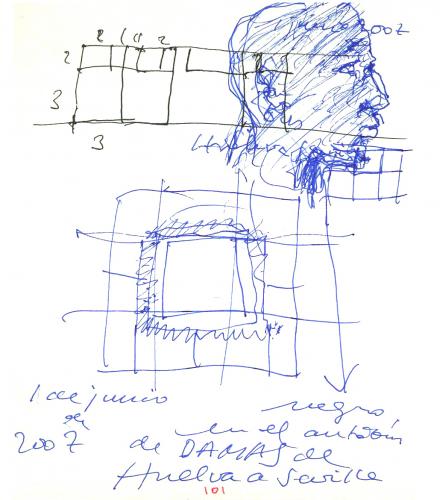 2 1 1 2
2
3
3
junio 2007
Huelva
1 de junio
de
2007
negro,
en el autobús
de DAMAS de
Huelva a Sevilla
101